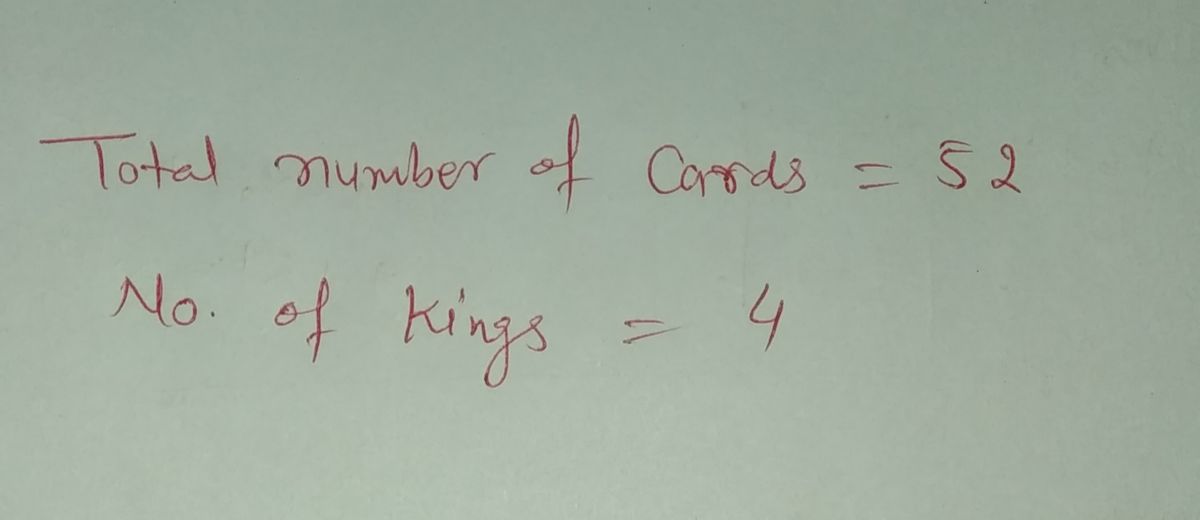 Total number of Cards = 52
No. of Kings = 4